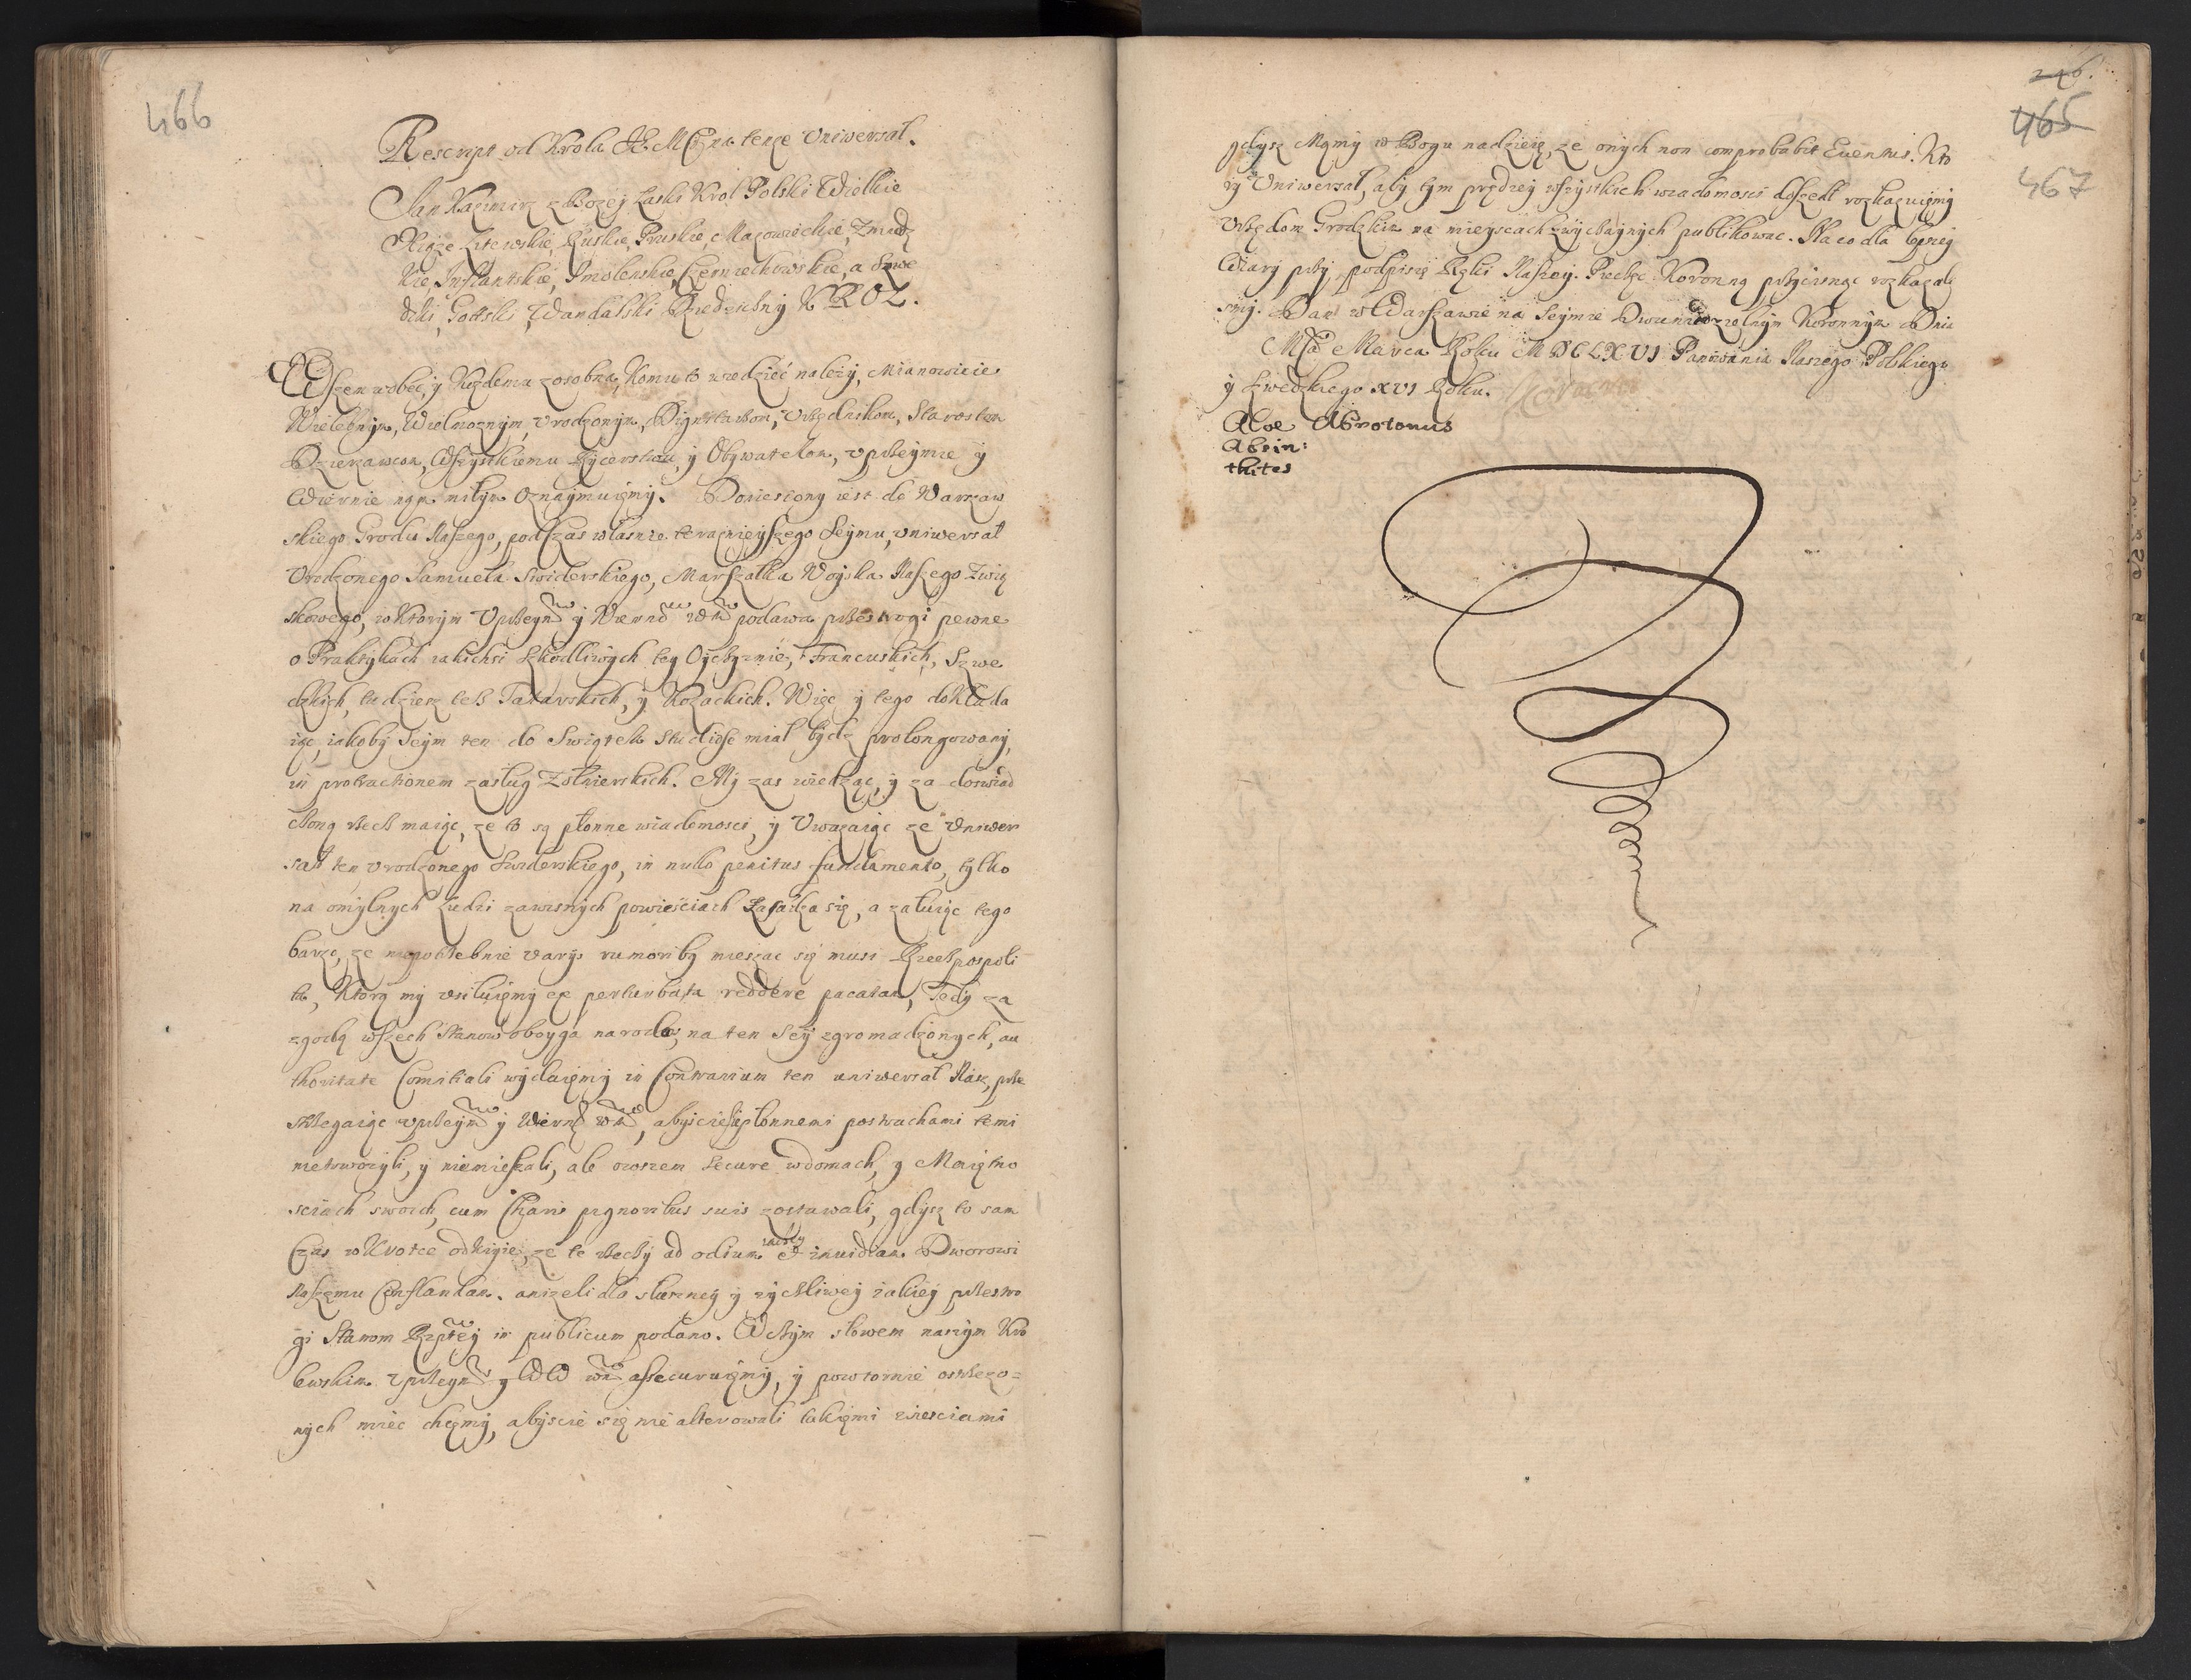 466
Rescript od Krola JE Mści na tenze Uniwersał.
Jan Kazimirz z Bozej Łaski Krol Polski Wielkie
Xiąze Litewskie, Ruskie, Pruskie, Mazowieckie, Zmudz
kie, Inflantskie, Smolenskie, Czerniechowskie, a Szwe
dzki, Gottski, Wandalski Dziedziczny KROL.
Wszem wobec, y Kazdemu zosobna, Komu to wiedzieć nalezy, Mianowicie
Wielebnym, Wielmoznym, Urodzonym, Dignitarzom, Urzędnikom, Starostom
Dzierzawcom, Wszystkiemu Rycerstwu, y Obywatelom, uprzeymie y
Wiernie nam miłym Oznaymuięmy. Doniesiony iest do Warszaw
skiego Grodu Naszego, pod Czas własnie teraznieyszego Seymu, uniwersał
Urodzonego Samuela Swiderskiego, Marszałka Woyska Naszego Zwią
skowego, w Ktorym Uprzeym y Wiern wm podawa przestrogi pewne
o Praktykach iakichsi szkodliwych tey Oyczyznie, Francuskich, Szwe
dzkich, tudziesz tesz Tatarskich, y Kozackich. Więc y tego dokłada
iąc, iakoby Seym ten do Swiątek studiose miał bydz prolongowany,
in protractionem zasług Zołnierskich. My zas wiedząc, y za doswiad
czoną rzecz maiąc, ze to są płonne wiadomosci, y Uwazaiąc ze Uniwer
sał ten urodzonego Swiderskiego, in nullo penitus fundamento, tylko
na omylnych Ludzi zawisnych powieściach Zasadza się, a załuiąc tego
barzo, ze niepotrzebnie varys rumoribq mieszac się musi Rzeczpospoli
ta, Ktorą my usiłuięmy ex perturbata reddere pacatam, Tedy za
zgodą wszech Stanow oboyga narodow, na ten Sey zgromadzonych, au
thoritate Comitiali wydaięmy in Contrarium ten uniwersał Nasz, prze
strzegaiąc uprzeym y Wiern wm, abysciesię płonnemi postrachami temi
nietrwozyli, y niemieszali, ale owszem secure w domach, y Maiętno
sciach swoich, cum Charis pignoribus suis zostawali, gdysz to sam
Czas w Krotce odkryie, ze te rzeczy ad odium et inuidiam Dworowi
Naszemu Conflandam. anizeli dla słuszney y zyczliwey iakiey przestro
gi Stanom Rzptey in publicum podano. W czym słowem naszym Kro
lewskim Uprzeym y W W wm assecuruięmy, y powtornie ostrzezo=
nych miec chcęmy, abyscie się nie alterowali takięmi wiesciami
246.
465
467
gdysz Mamy w Bogu nadzieię, ze onych non comprobabit Euentus. Kto
ry Uniwersał, aby tym prędzey wszystkich wiadomosci doszedł rozkazuięmy
Urzędom Grodzkim na mieyscach zwyczaynych publikowac. Na co dla lepszey
Wiary przy podpisie Ręki Naszey. Pieczęc Koronną przycisnąc rozkazali
smy. Dan w Warszawie na Seymie Dwuniedzielnym Koronnym Dnia
Msca Marca Roku MDCLXVI Panowania Naszego Polskiego
y Szwedzkiego XVI Roku.
Aloe Abrotonus
Absin:
thites